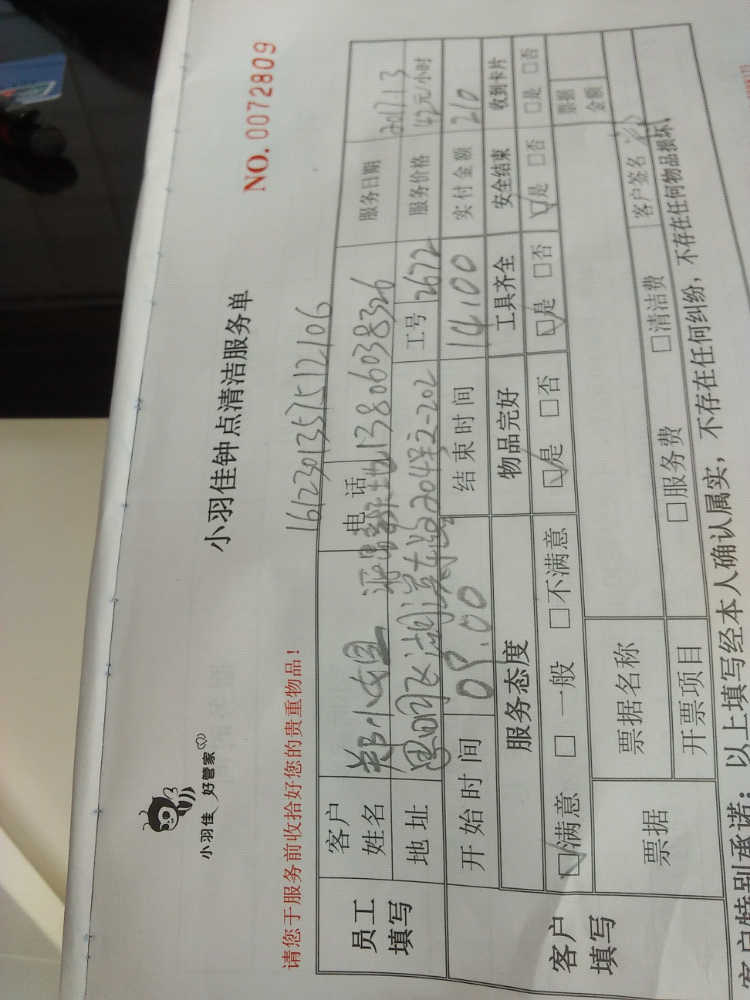 小羽佳 好管家
小羽佳钟点清洁服务单
NO. 0072809
请您于服务前收拾好您的贵重物品!
1612301357512106
员工填写
客户姓名 郑小姐 电话 13806038326 服务日期 2017.1.3
地址 思明区 204号2-202 工号 2672 服务价格 42元/小时
开始时间 09.00 结束时间 14.00 实付金额 210
客户填写
服务态度 物品完好 工具齐全 安全结束 收到卡片
☑满意 □一般 □不满意 ☑是 □否 ☑是 □否 ☑是 □否 □是 □否
票据 票据名称 票据金额
开票项目 □服务费 □清洁费 客户签名
客户特别承诺:以上填写经本人确认属实,不存在任何纠纷,不存在任何物品损坏、